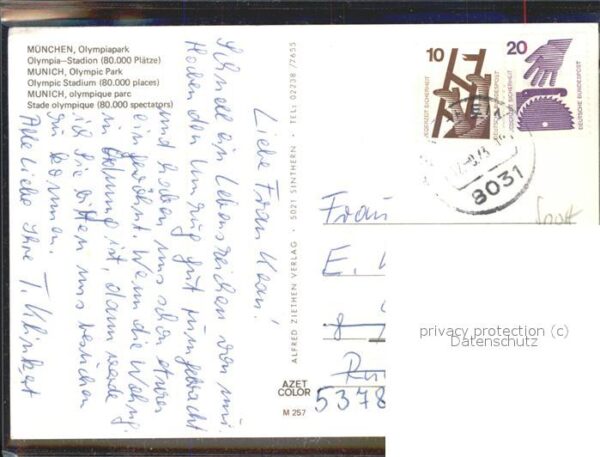 MÜNCHEN, Olympiapark
Olympia-Stadion (80.000 Plätze)
MUNICH, Olympic Park
Olympic Stadium (80.000 places)
MUNICH, olympique parc
Stade olympique (80.000 spectators)
Liebe Frau
Schnell ein Lebenszeichen von mir.
Haben den Umzug gut rumgebracht
und haben uns schon etwas
eingewöhnt. Wenn die Wohng.
in Ordnung ist, dann werde
ich Sie bitten uns besuchen
zu kommen.
Alles liebe Ihre T.
ALFRED ZIETHEN VERLAG · 5021 SINTHERN · TEL: 02238 /7655
AZET
COLOR
M 257
10
JEDERZEIT SICHERHEIT
DEUTSCHE BUNDESPOST
20
JEDERZEIT SICHERHEIT
DEUTSCHE BUNDESPOST
8031
Sport
Frau
E.
8
5378
privacy protection (c)
Datenschutz